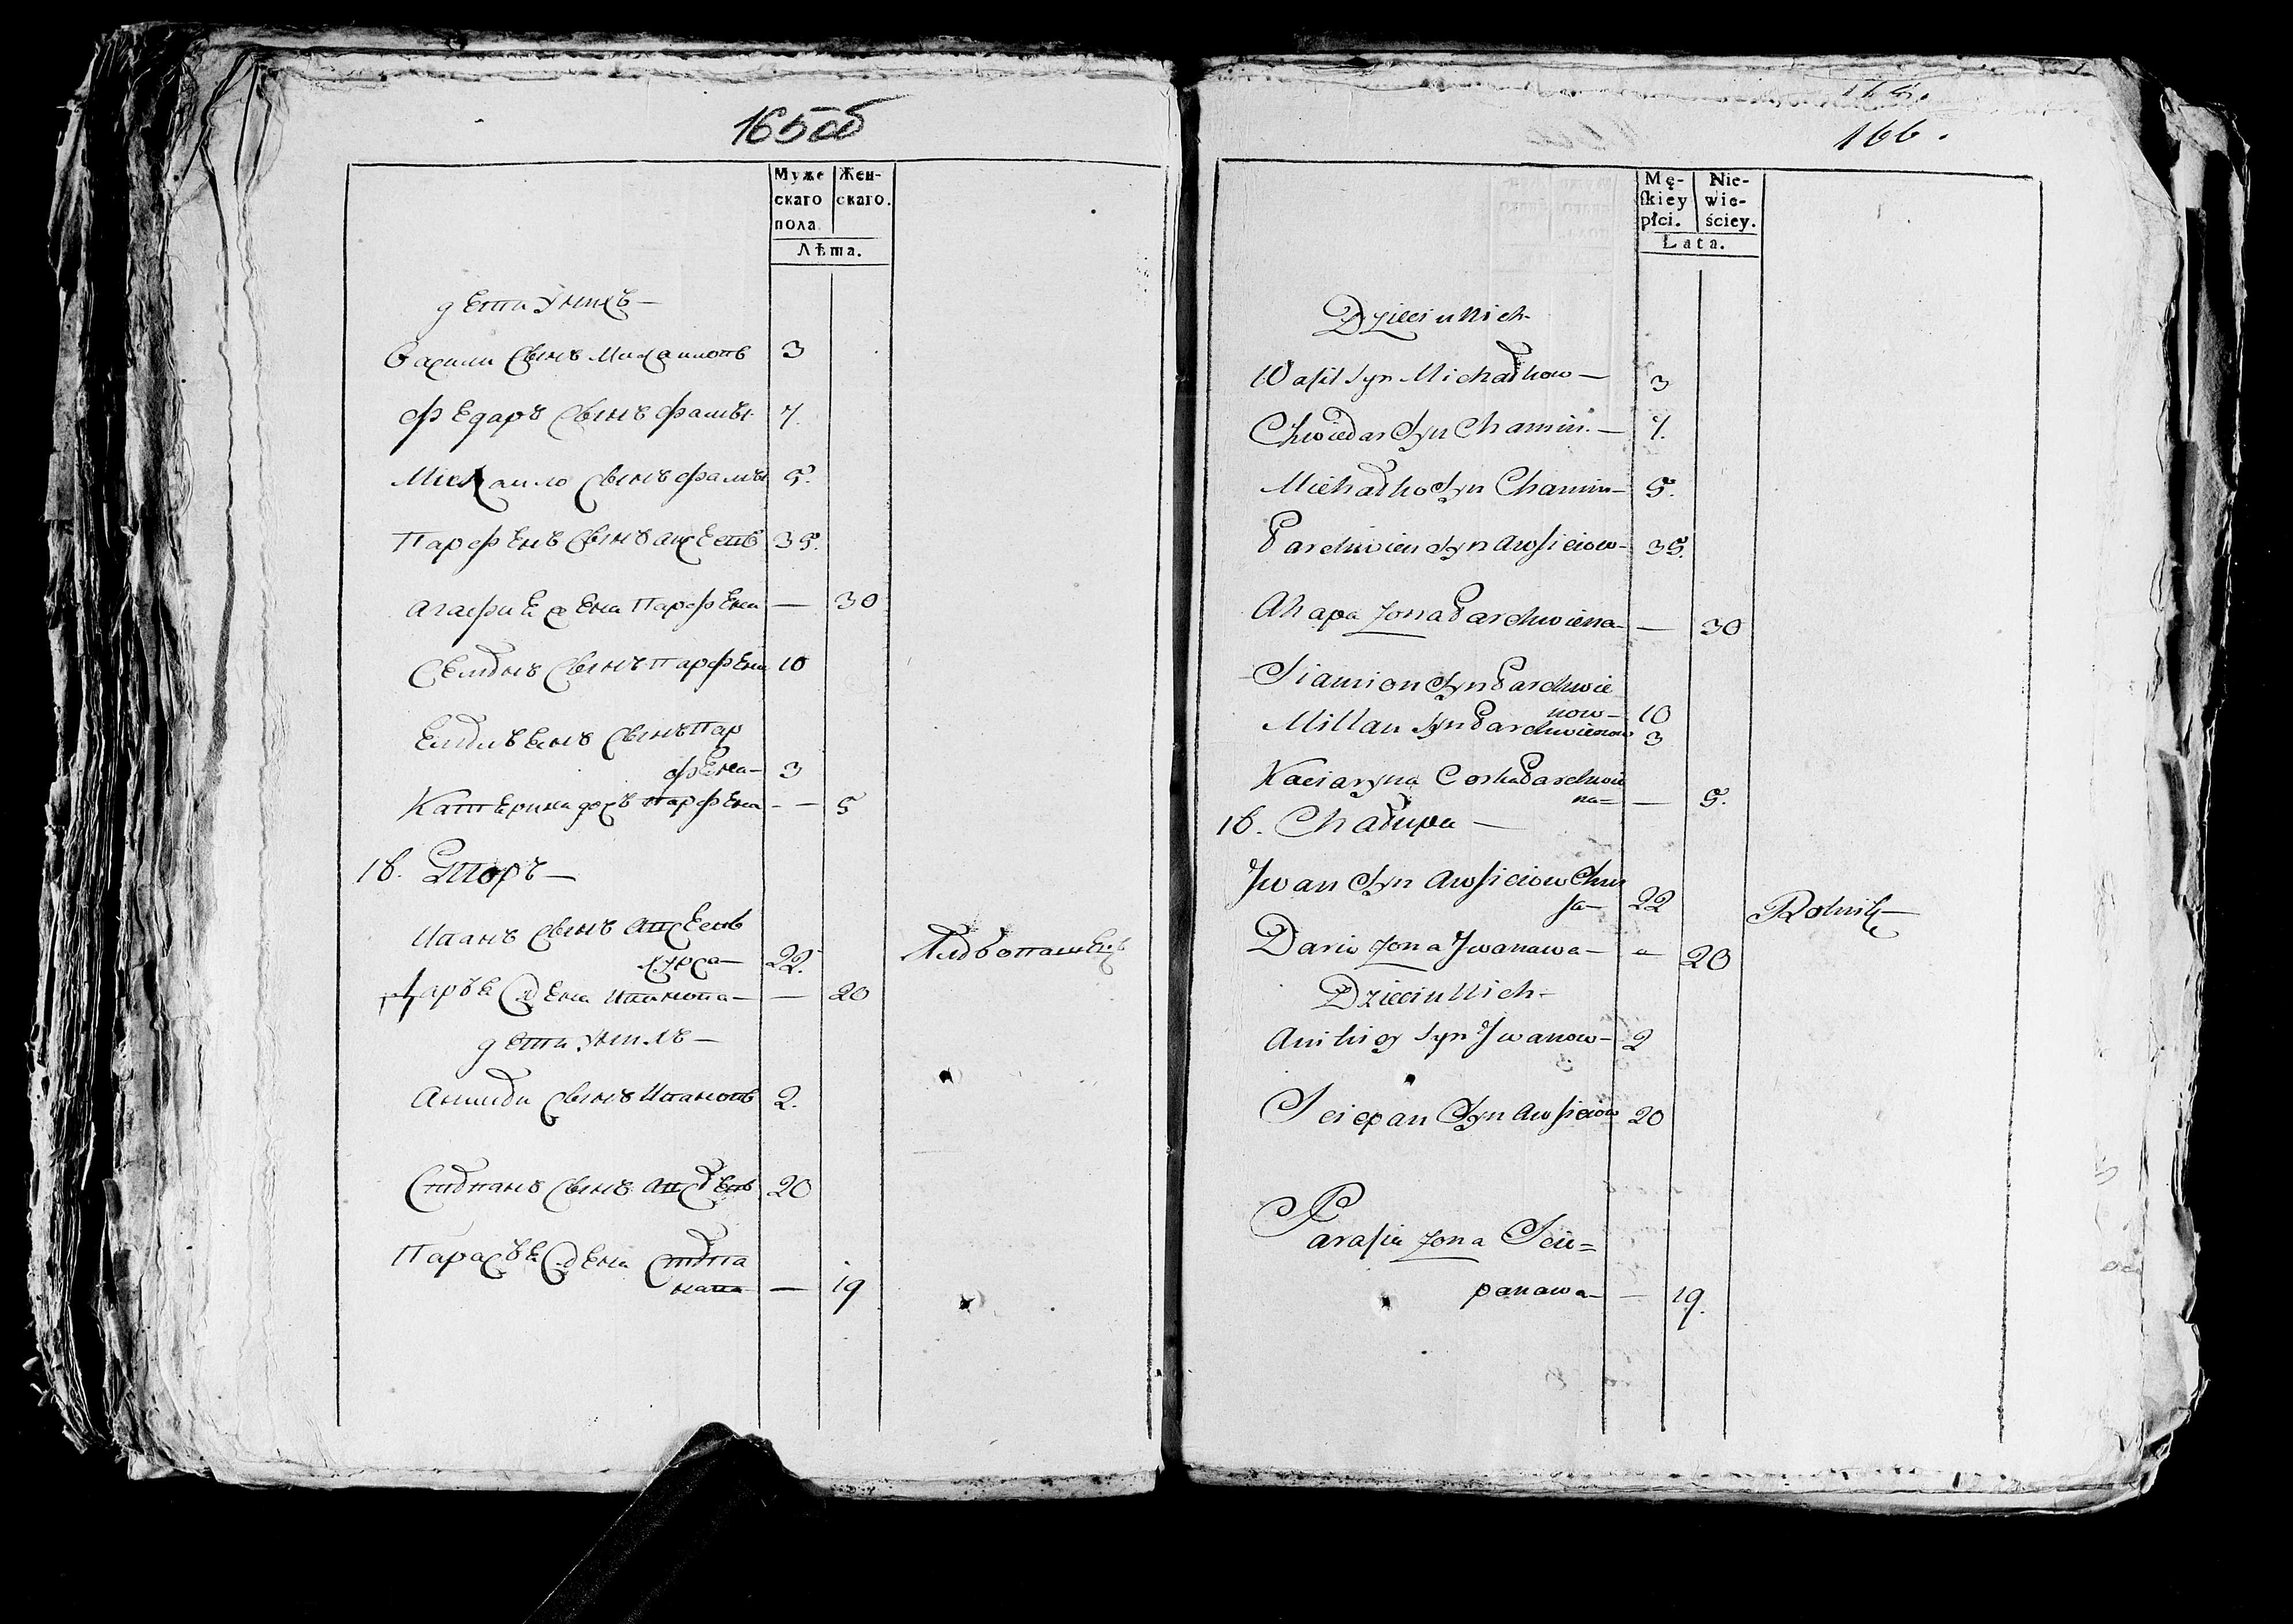 165об
Муже Жен-
скаго скаго.
пола.
Лѣта.
дети уних
Васили сынъ Михаиловъ 3
Федаръ сынъ Фамы 7.
Михаило сынъ Фамы 5.
Парфенъ сынъ авсеевъ 35.
агафие жена Парфена — 30
семѣонъ сынъ парфена 10
сынъ Пар
фена — 3
Катерина парфена — 5
16. Дворъ —
Иванъ сынъ авсеевъ
хурса — 22.
Даръе жена Иванова — — 20
дети унихъ —
сынъ Ивановъ 2.
Степанъ сынъ авсеевъ 20
Парасъе жена Степа
нава — 19
166.
Mę- Nie-
skiey wie-
płci. ściey.
Lata.
Dzieci u Nich
Wasil Syn Michałkow — 3
Chwiedar Syn Chamin. — 7.
Michałko Syn Chamin — 5.
Parchwien Syn Awsieiow — 35.
Ahapa Żona Parchwiena — — 30
Siamion Syn Parchwie
now — 10
Millan Syn Parchwienow 3
Kaciaryna Corka Parchwie
na = — 5.
16. Chałupa —
Jwan Syn Awsieiow Chur
sa — 22 Rolnik
Daria Żona Jwanawa — 20
Dzieci u Nich —
Syn Jwanow — 2
Sciepan Syn Awsieiow 20
Parasia Żona Scie=
panawa — — 19.